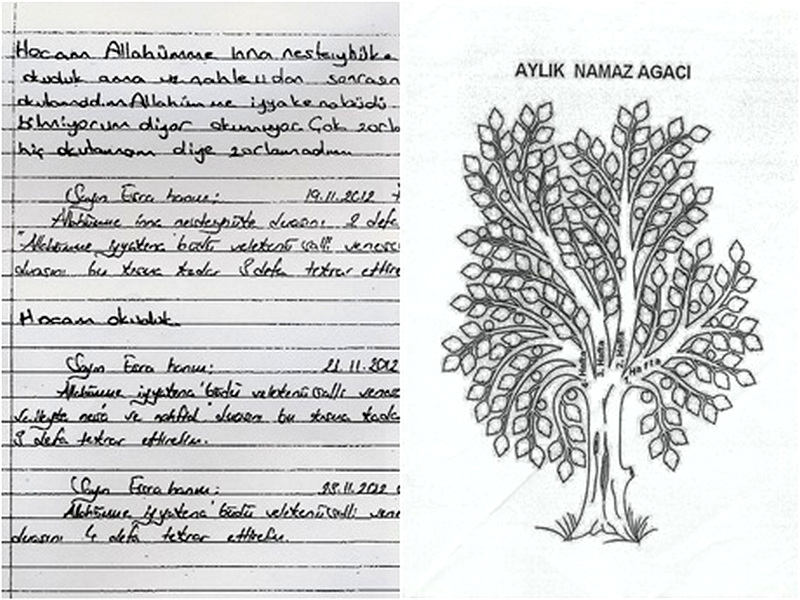 Hocam Allahümme inna nesteıyhüke
okuduk ama ve nahleu dan sonrasın
okutamadım Allahümme iyyake nabüdü
bilmiyorum diyor okumuyor. Çok zorla
hiç okutamam diye zorlamadım
Sayın Esra hanım; 19.11.2012
Allahümme inna nesteıynüke duasını 2 defa
"Allahümme iyyakena'büdü velekenüsalli venesc
duasını bu kısma kadar 3 defa tekrar ettire
Hocam okuduk.
Sayın Esra hanım; 21.11.2012
Allahümme iyyakena'büdü velekenüsalli venes
ve ileyke nes'a ve nahfidü duasını bu kısma kada
3 defa tekrar ettirelim.
Sayın Esra hanım;
Allahümme iyyakena'büdü velekenüsalli ven
duasını 4 defa tekrar ettirelim.
AYLIK NAMAZ AGACI
4. Hafta
3. Hafta
2. Hafta
1. Hafta